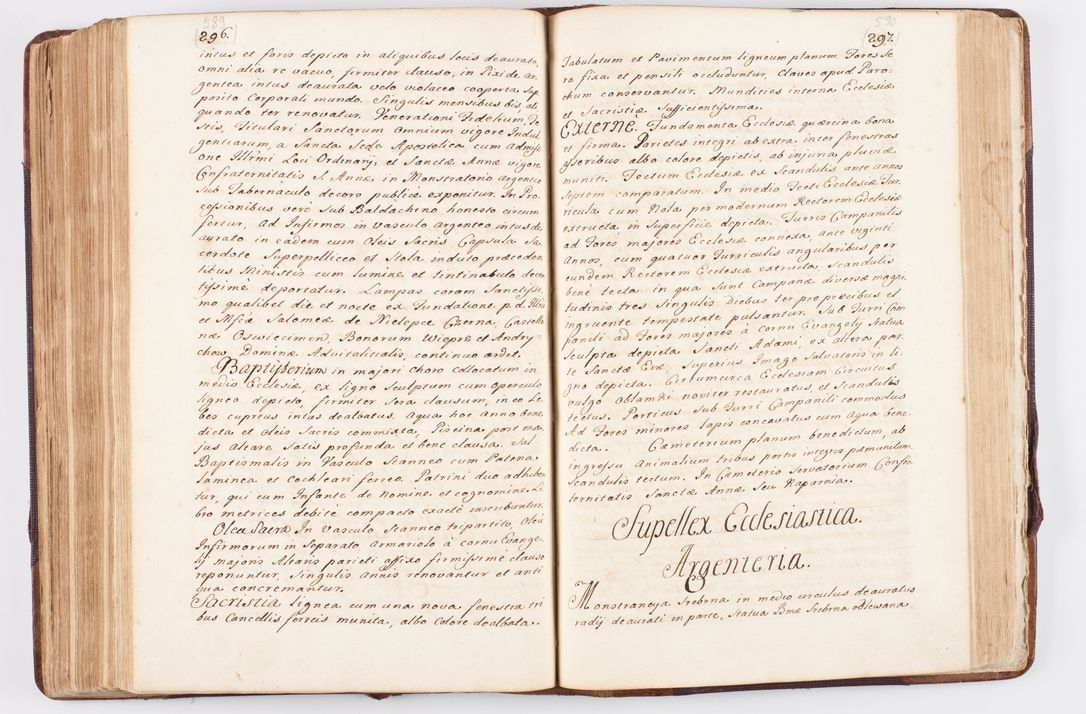 589
296.
intus et foris depicto in aliquibus locis deaurato,
omni alia re vacuo, firmiter clauso, in Pixide ar-
gentea intus deaurata velo violaceo cooperta, sup-
posito Corporali mundo. Singulis mensibus bis, ali
quando ter renovatur. Venerationi Fidelium Fe
stis, Titulari Sanctorum omnium vigore Indul
gentiarum, a Sancta Sede Apostolica cum admissi
one Illrmi Loci Ordinarij, et Sanctæ Annæ vigore
Confraternitatis S. Annæ in Monstratorio argenteo
sub Tabernaculo decoro publicè exponitur. In Pro-
cessionibus verò sub Baldachino honesto circum
fertur, ad Infirmos in vasculo Argenteo intus de
aurato in eadem cum Oleis Sacris Capsula Sa
cerdote Superpelliceo et Stola induto præceden
tibus Ministris cum lumine et tintinabulo decen
tissimè deportatur. Lampas coram Sanctissi
mo qualibet die et nocte ex Fundatione p.d. Illris
et Mficæ Salomeæ de Nielepce Czerna, Castella
næ Oswiecimen, Bonorum Wieprz et Andry-
chow Dominæ Advitalitialis, continuo ardet.
Baptisterium in majori choro collocatum in
medio Ecclesiæ, ex ligno Sculptum cum operculo
ligneo depicto, firmiter sera clausum, in eo Le
bes cupreus intus dealbatus. Aqua hoc anno bene
dicta et Oleis Sacris commixta, Piscina post ma
jus Altare Satis profunda et bene clausa. Sal
Baptismalis in Vasculo Stanneo cum Patena
laminea et Cochleari ferreo. Patrini duo adhiben
tur, qui cum Infante de nomine et cognomine Li
bro metrices debitè compacto exactè inscribuntur.
Olea Sacra In Vasculo Stanneo tripartito, Oleu
Infirmorum in Separato Armariolo à cornu Evange
lij majoris Altaris parieti affixo firmissimè clauso
reponuntur, Singulis annis renovantur et anti
qua concremantur.
Sacristia lignea cum una nova fenestra tri
bus Cancellis ferreis munita, albo Colore dealbata.
590
297.
Tabulatum et Pavimentum ligneum planum. Fores Se
ra fixa et pensili occluduntur, Claves apud Paro-
chum conservantur. Mundities interna Ecclesiæ
et Sacristiæ Sufficientissima.
Externè. Fundamenta Ecclesiæ quercina bona
et firma. Parietes integri ab extra inter fenestras
asseribus albo colore depictis, ab injuria pluviæ
muniti. Tectum Ecclesiæ ex Scandulis ante annos
Septem comparatum. In medio Tecti Ecclesiæ Tur
ricula cum Nola per modernum Rectorem Ecclesiæ
extructa, in Superficie depicta. Turris Campanilis
ad Fores majores Ecclesiæ connexa, ante viginti
Annos, cum quatuor Turriculis angularibus per
eundem Rectorem Ecclesiæ extructa, Scandulis
benè tecta, in qua Sunt Campanæ diversæ magni
tudinis tres Singulis Diebus ter pro precibus et
ingruente tempestate pulsantur. Sub Turri Cam
panili ad Fores majores à cornu Evangelij Statua
Sculpta depicta Sancti Adami, ex altera par
te Sanctæ Evæ, Superius Imago Salvatoris in li
gno depicta. Circumcirca Ecclesiam Circuitus
vulgo Oblamki noviter restauratus, et Scandulis
tectus. Porticus Sub Turri Campanili commodus
Ad Fores minores lapis concavatus cum Aqua bene
dicta. Cæmeterium planum benedictum, ab
ingressu Animalium tribus portis integris præmunitum
Scandulis tectum. In Cæmeterio Servatorium Confra
ternitatis Sanctæ Annæ Seu Kaparnia.
Supellex Ecclesiastica.
Argenteria.
Monstrancya Srebrna in medio circulus deauratus
radij deaurati in parte, Statua Bmæ Srebrna odlewana